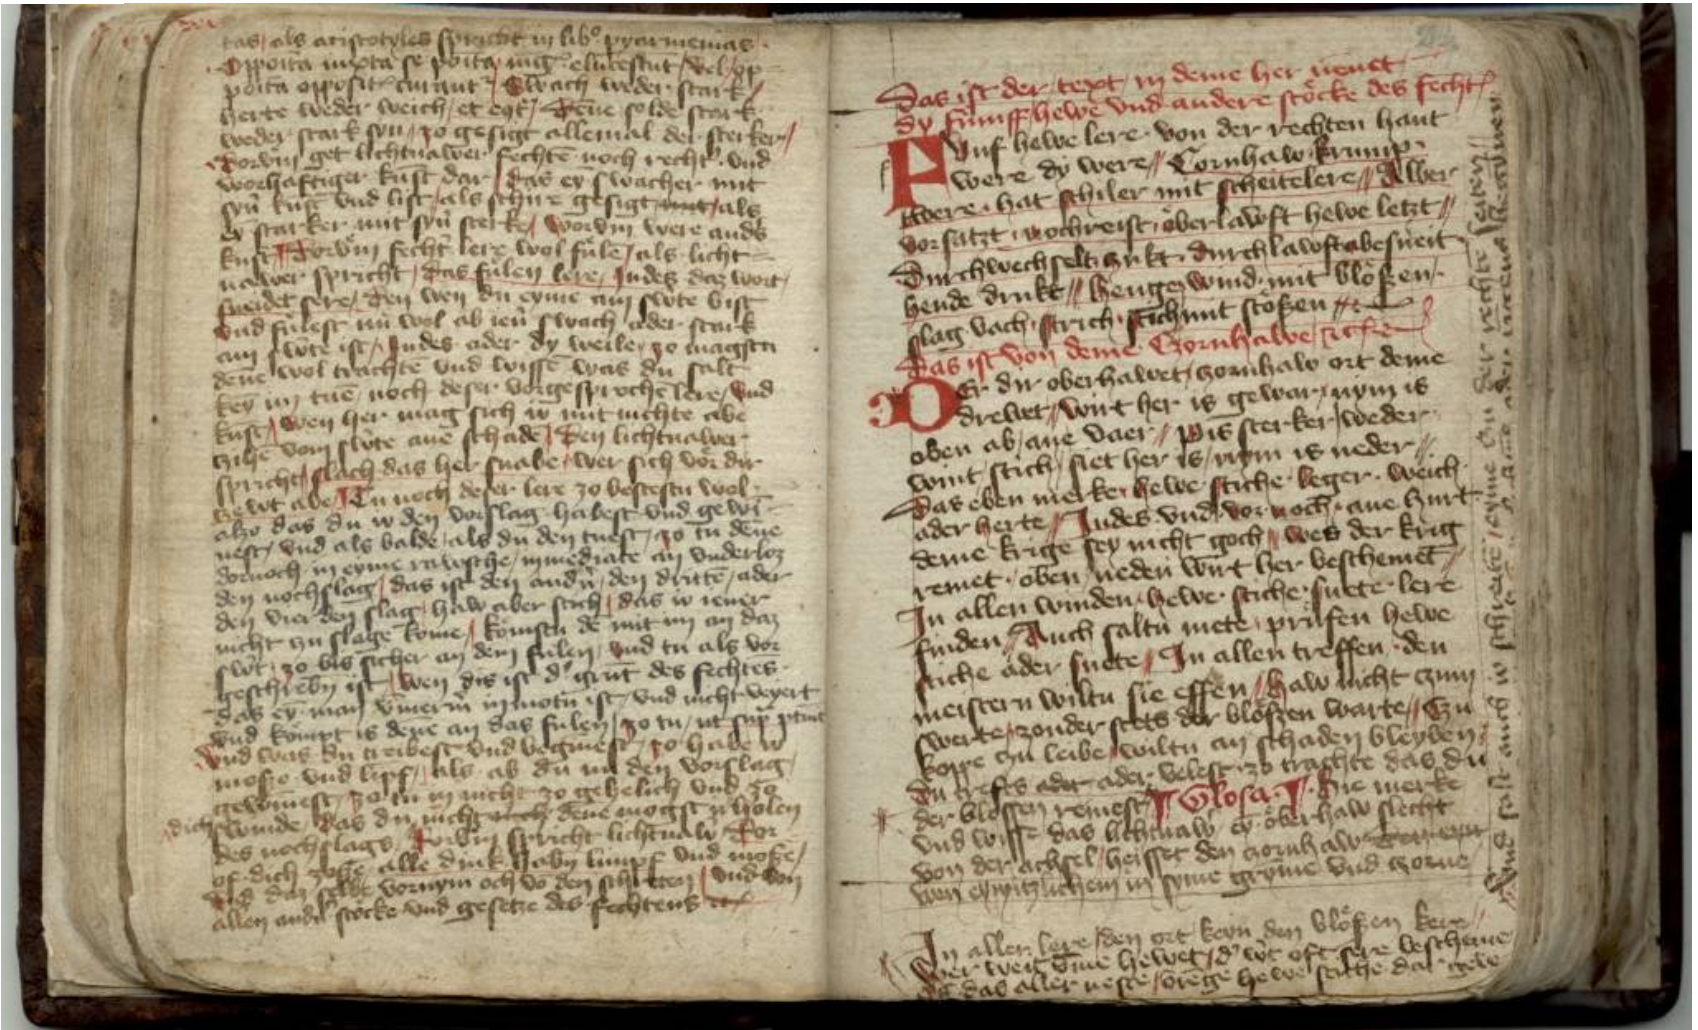 tas / als aristotyles spricht in libº pyarmenias ·
Opposita iuxta se posita mag̃ elucescunt / vel / op
posita oppositͥ curantͬ / Swach weder stark /
herte weder weich / et eqͣ / Deñe solde stark
weder stark syn / zo gesigt allemal der sterker /
Dorvm̄ get lichtnawer fechtē noch rechtˢ · vnd
worhaftiger kūst dar / das eyˢ swacher mit
syñˢ kūst vnd list / als schire gesigt mit / als
eyˢ starker mit syñˢ sterke / worvm̄ were andˢs
kūst / Dorvm̄ fechtˢ lere wol fülē / als licht=
nawer spricht / Das fülen lere / Indes daz wort /
sneidet sere / Den wen du eyme am swˢte bist
vnd fülest nū wol ab ieñˢ swach ader stark
am swˢte ist / Indes ader dy weile / zo magstu
deñe wol trachtē vnd wissē was du salt
keyˢ im tuē / noch deser vorgesprochē lere / vnd
kūst / wen her mag sich io mit nichte abe
czihē vom swˢte ane schadē / Den lichtnawer
spricht / slach das her snabe / wer sich vor dir
zewt abe / Tu noch deser lere zo bestestu wol ·
alzo das du io den vorslag habest vnd gewī
nest / vnd als balde als du den tuest / zo tu deñe
dornoch in eyme rawsche / immediate an vnderloz
den nochslag / das ist den andˢn / den drittē / ader
den vierden slag / haw aber stich / das io iener
nicht zu slage kome / kömstu dē mit im an daz
swˢt / zo bis sicher an dem fülen / vnd tu als vor
geschrebn̄ ist / wen dis ist dˢ grūt des fechtes ·
das eyˢ man ȳmerm̄ in motu ist / vnd nicht veyert
vnd kömpt is deñe an das fülen / zo tu / ut supͣ ptuit
Vnd was du treibest vnd begīnest / zo habe io
mosze vnd lipf / als ab du im den vorslag /
gewīnest / zo tu in nicht zo gehelich vnd zo
swinde / das du nicht mich deñe mogst io holen
dich
des nochslags / Dorvm̄ spricht lichtnawˢ Dor
of dich zosze / alle dink habn̄ limpf vnd mosze /
Vnd daz selbe vornym och vō den schreten / vnd von
allen andˢn stöcke vnd gesetze des fechtens etc
Das ist der / text / in deme her nenet
dy fünff hewe vnd andere stöcke des fechtˢs
Fvnf hewe lere · von der rechten hant
were dy were // Czornhaw · krump ·
twere · hat schiler · mit scheitelere // Alber
vorsatzt · nochreist · öberlawft hewe letzt //
Durchwechselt · czukt · durchlawft abesneit
hende drukt // henge / wind · mit blößen ·
slag · vach · strich · stich mit stößen // etc
Das ist von deme Czornhawe etc
Der dir oberhawet / zornhaw ort deme
drewet // wirt her is gewar / nym is
oben ab / ane vaer // Pis sterker / weder
wint stich / siet her is / nym is neder //
Das eben merke · hewe · stiche · leger · weich
ader herte // Indes · vnd · vor noch · ane hurt
deme krige sey nicht goch // wes der krig
remet · oben / neden wirt her beschemet //
In allen winden / hewe · stiche · snete · lere
finden // Auch saltu mete · prüfen hewe
stiche ader snete // In allen treffen · den
meistern wiltu sie effen / haw nicht czum
swerte / zonder stets der blößen warte // Czu
koppe czu leibe / wiltu an schaden bleyben ·
Du trefts ader ader velest · zo trachte das du
der blossen remest // Glosa · Hie merke
vnd wisse das lichtnawˢ / eyˢ öberhaw slecht
von der achsel / heisset den zornhaw
wen eym itzlichem in syme gryme vnd zorne
In aller lere / den ort keyn den blößen kere //
Wer weit vͫme hewet / dˢ wˢt oft sere bescheme
Of das aller neste / brēge hewe stiche dar gewe